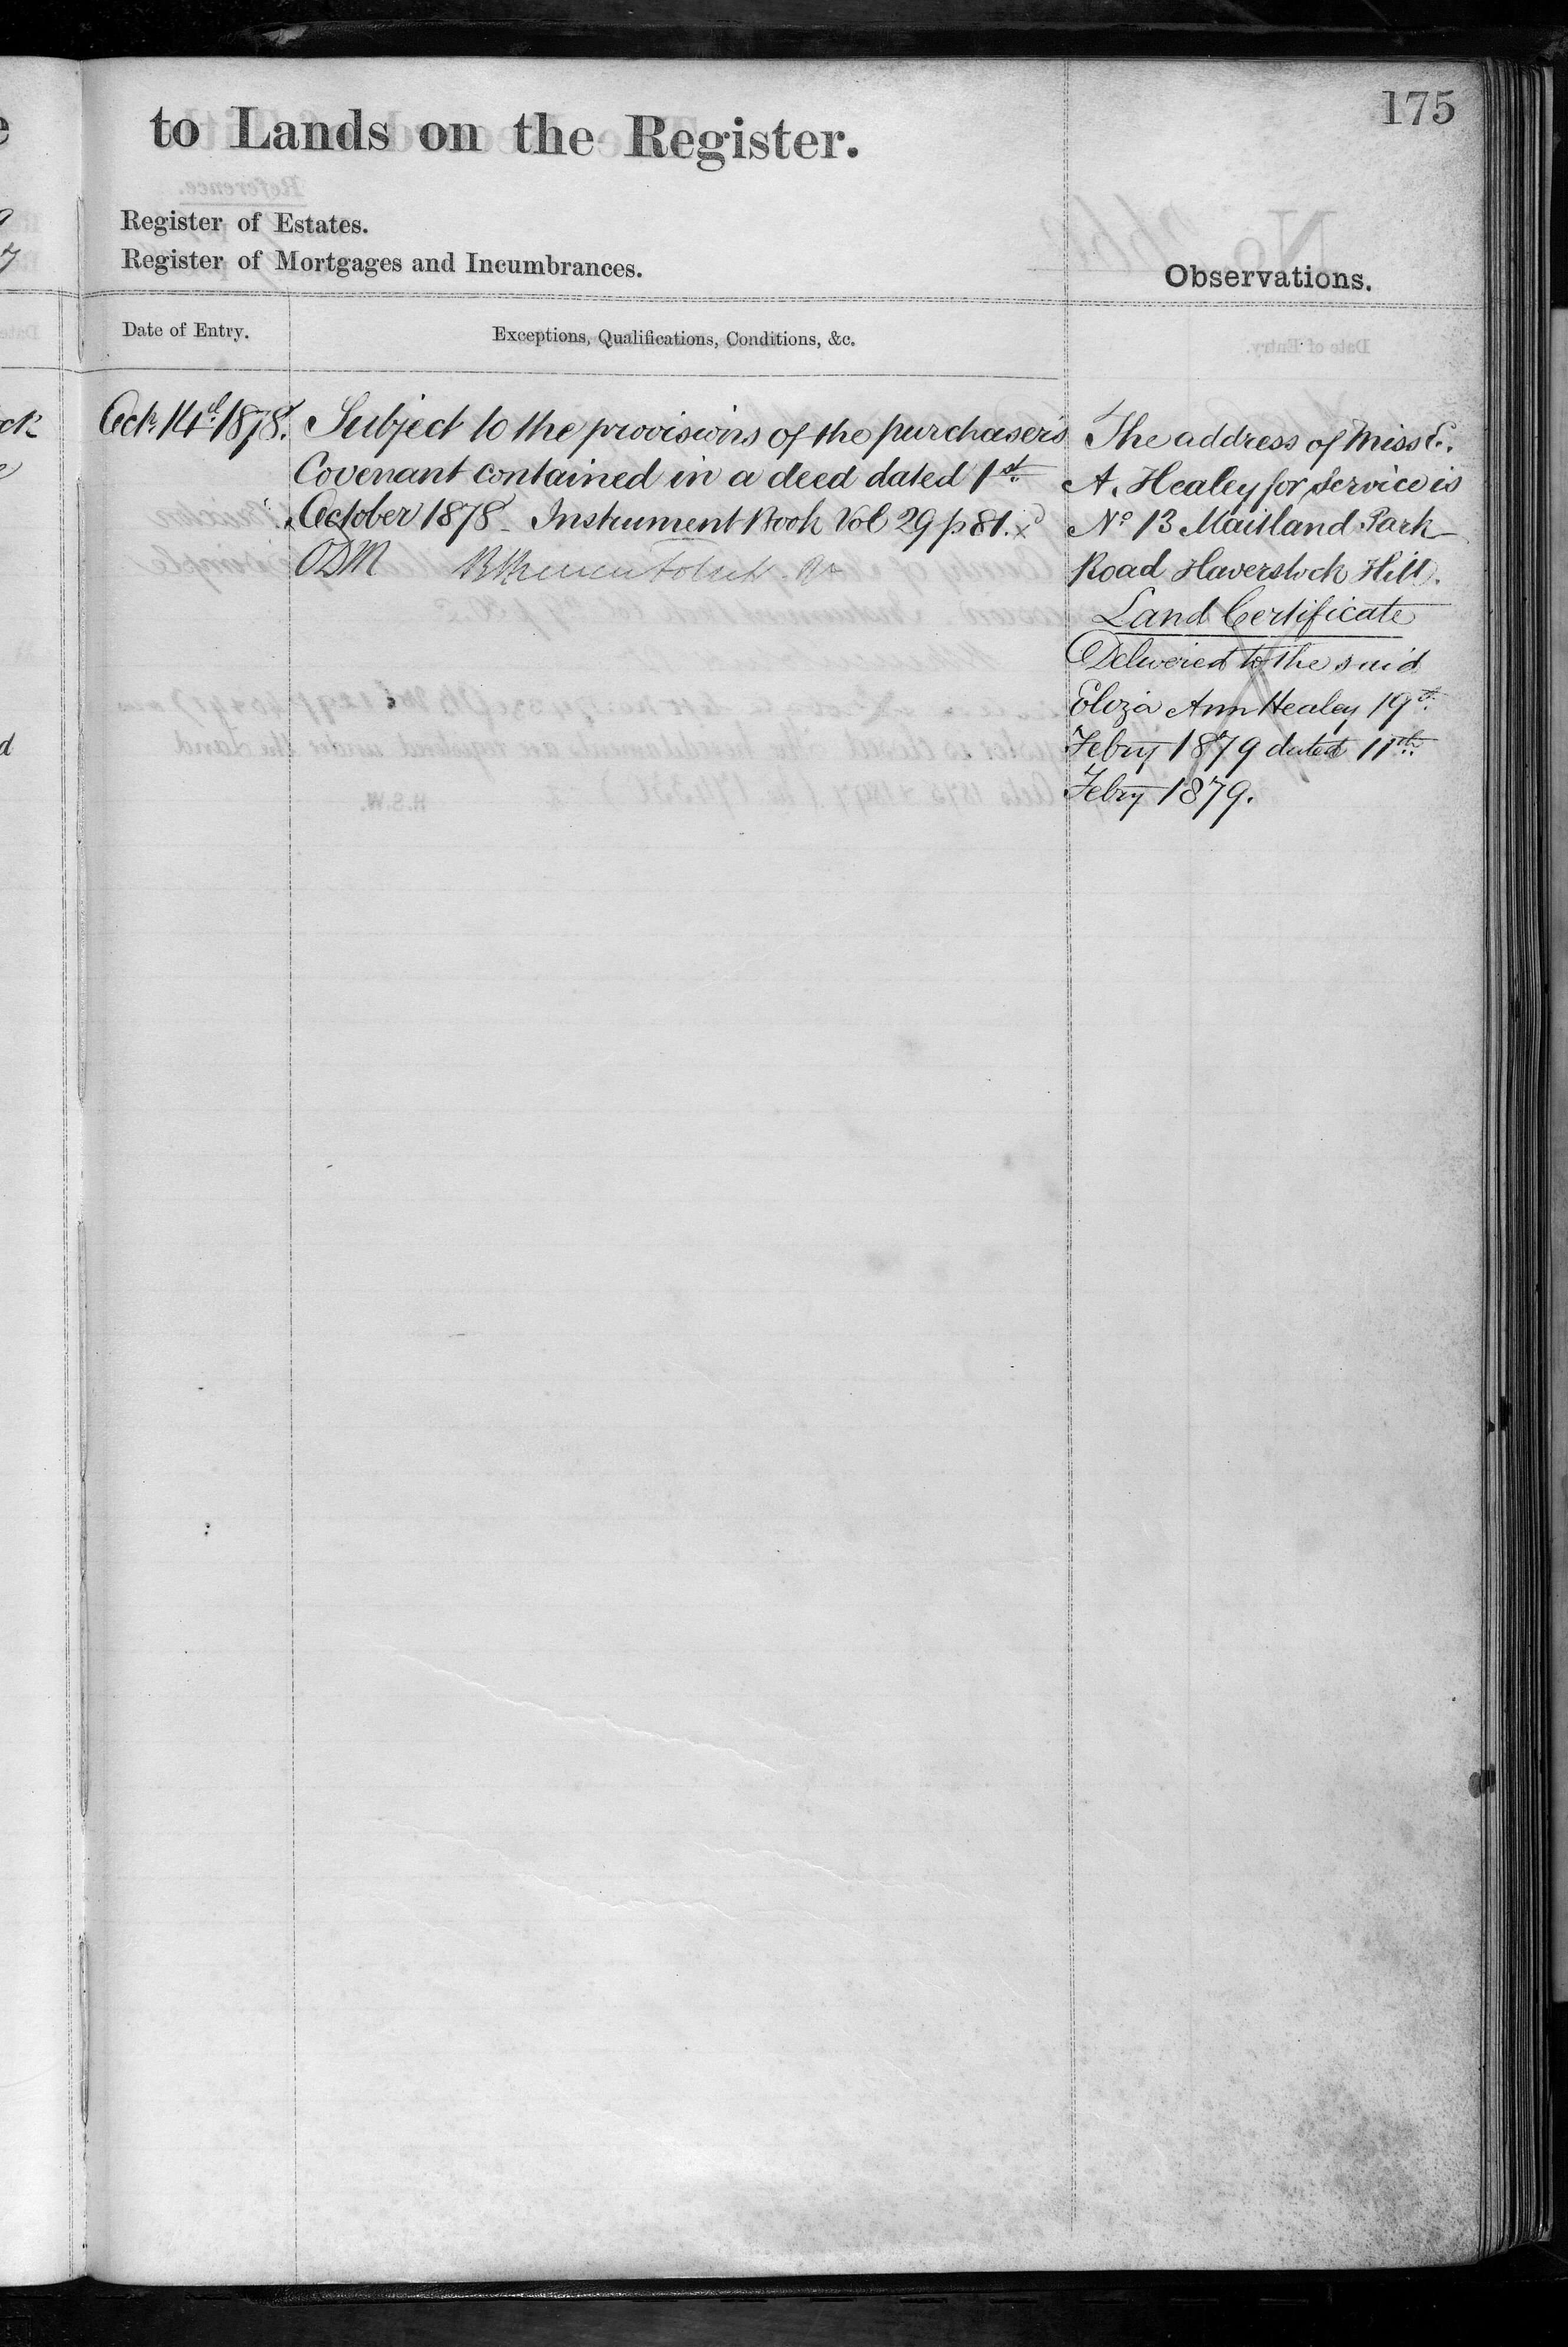 175
to Lands on the Register.
Register of Estates.
Register of Mortgages and Incumbrances.
Observations.
Date of Entry.
Exceptions, Qualifications, Conditions, &c.
Oct. 14th 1878.
Subject to the provisions of the purchasers
Covenant contained in a deed dated 1st
October 1878 - Instrument Book Vol 29 p 81.
The address of Miss E.
A. Healey for service is
No 13 Maitland Park
Road Haverstock Hill.
Land Certificate
Delivered to the said
Eliza Ann Healey 19th
Febry 1879 dated 11th
Febry 1879.